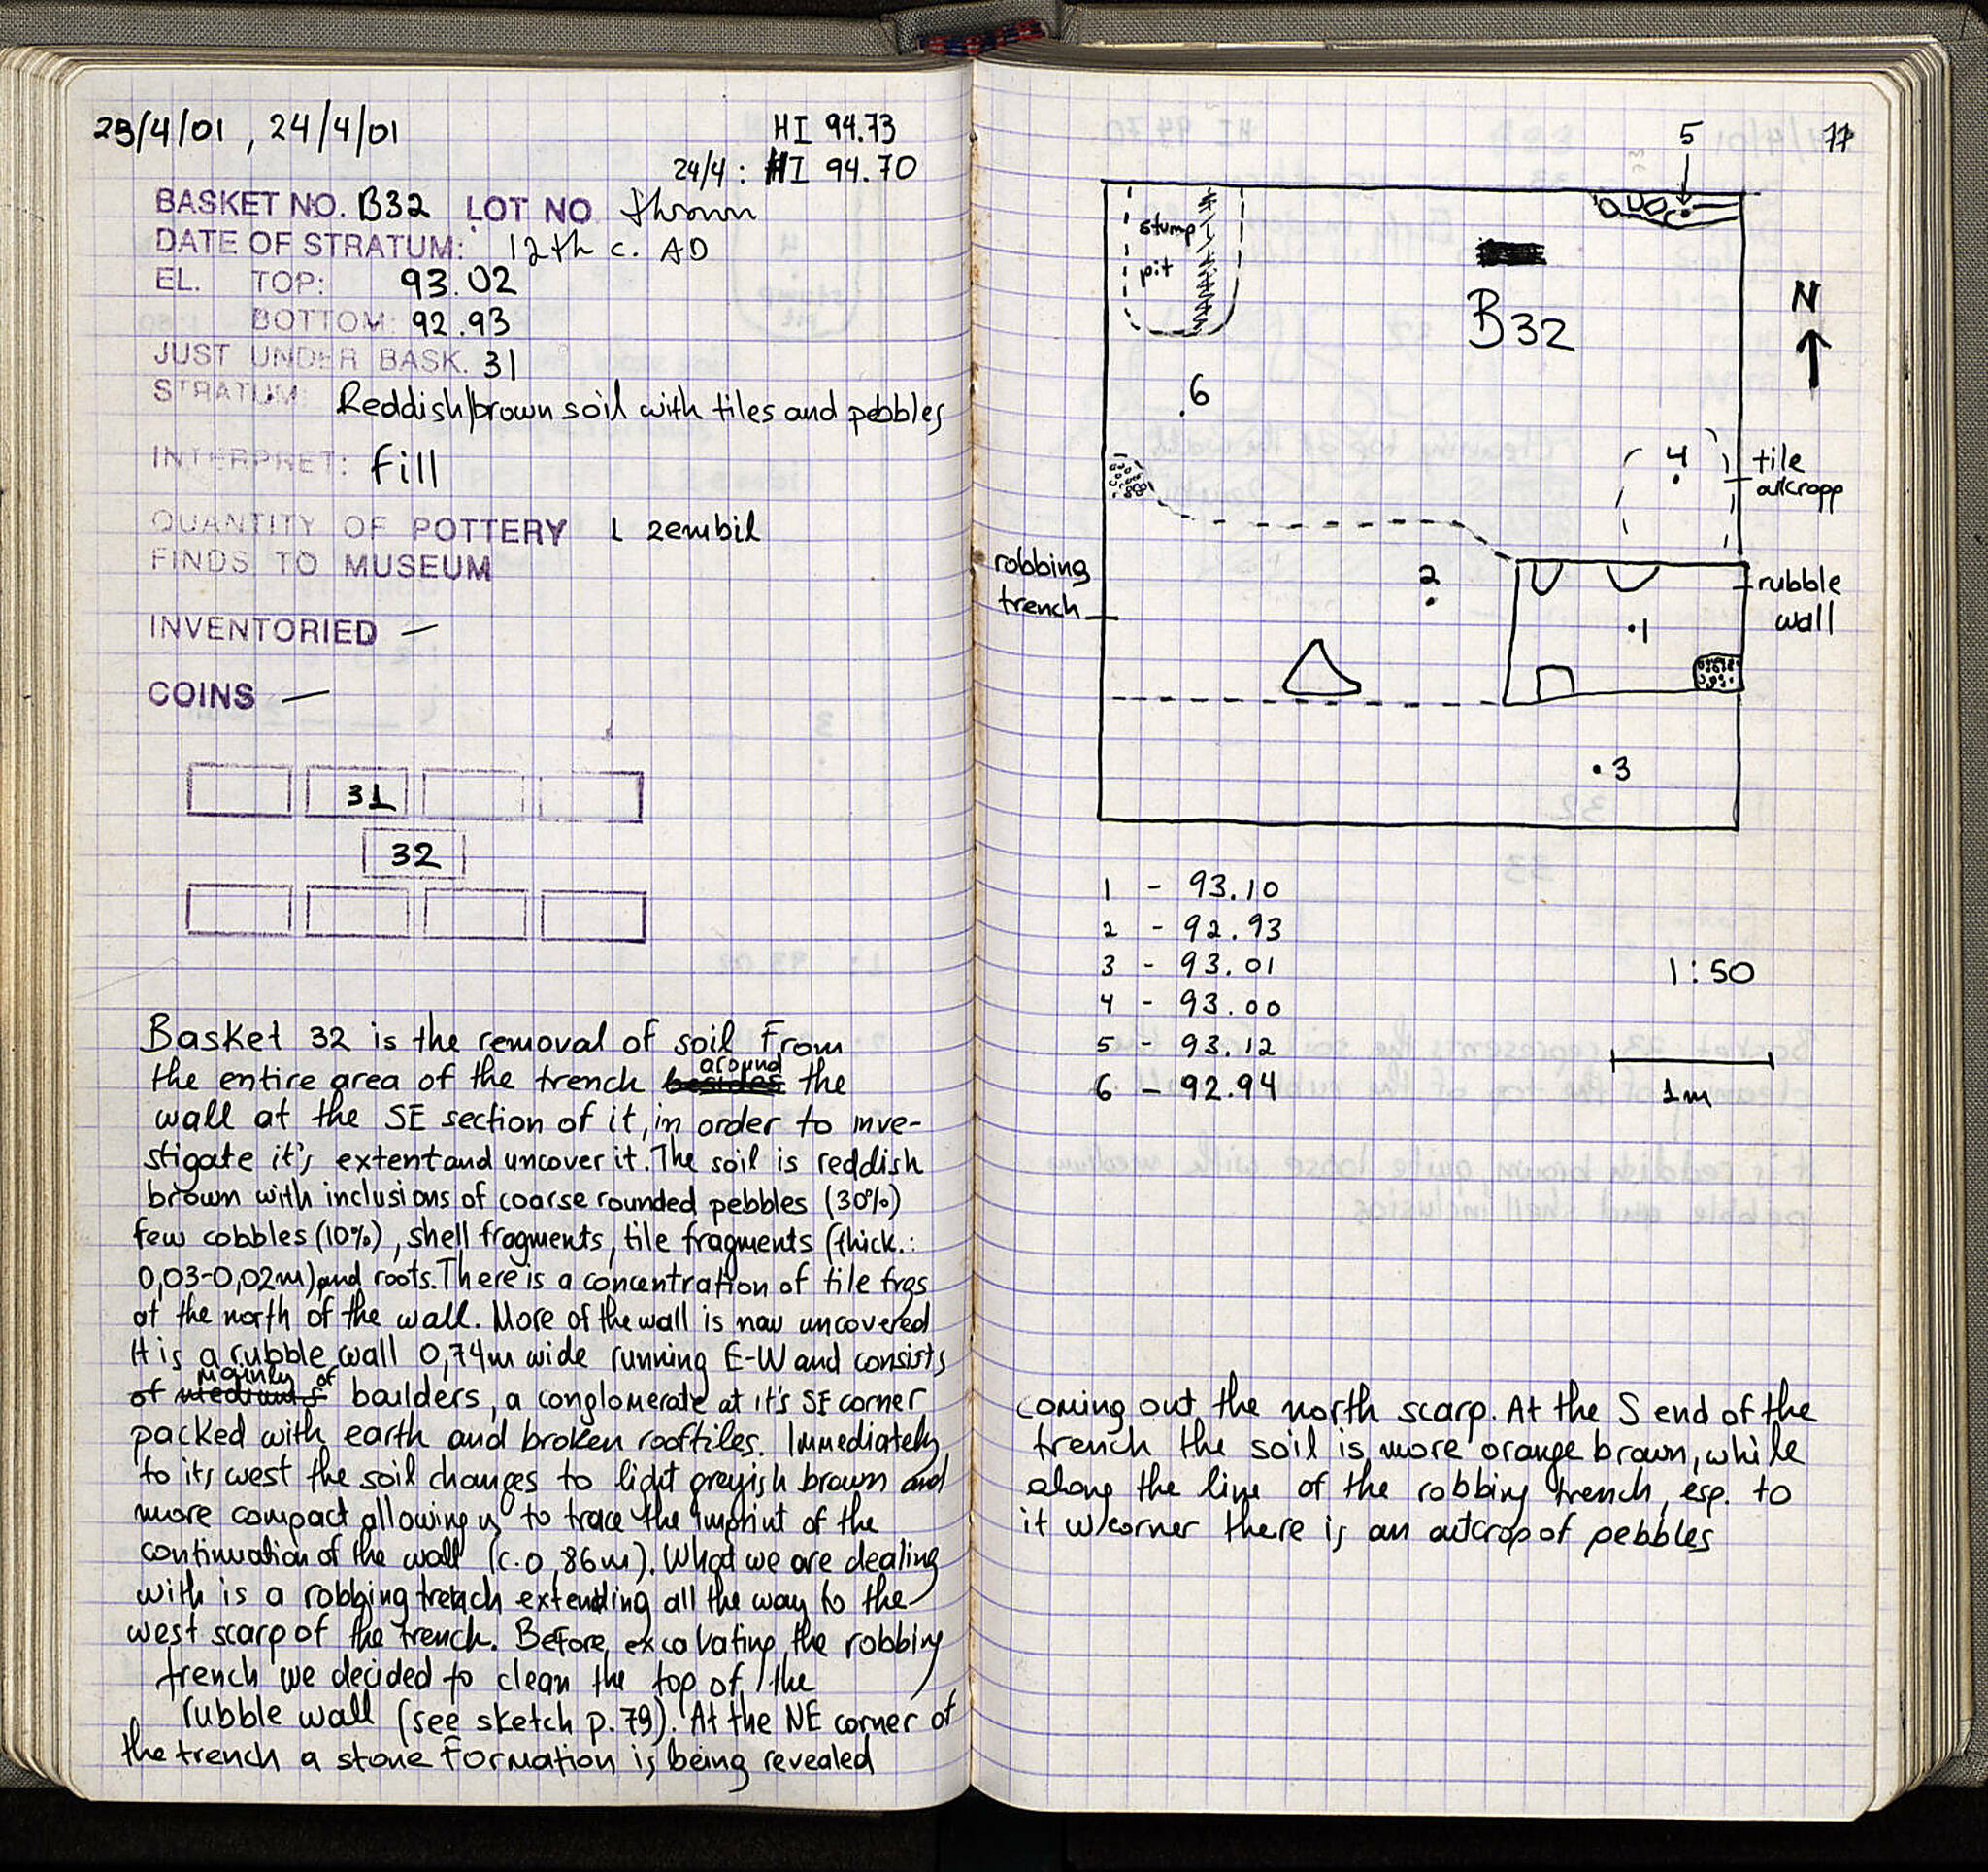 23/4/01, 24/4/01
HI 94.73
24/4: HI 94.70
BASKET NO. B32 LOT NO thrown
DATE OF STRATUM: 12th c. AD
EL. TOP: 93.02
BOTTOM: 92.93
JUST UNDER BASK. 31
STRATUM: Reddish/brown soil with tiles and pebbles
INTERPRET: fill
QUANTITY OF POTTERY 1 zembil
FINDS TO MUSEUM
INVENTORIED —
COINS —
31
32
Basket 32 is the removal of soil From
the entire area of the trench besides around the
wall at the SE section of it, in order to inve-
stigate it's extent and uncover it. The soil is reddish
brown with inclusions of coarse rounded pebbles (30%)
few cobbles (10%), shell fragments, tile fragments (thick.:
0,03-0,02m) and roots. There is a concentration of tile frgs
at the north of the wall. More of the wall is now uncovered
It is a rubble wall 0,74m wide running E-W and consists
of mainly of boulders, a conglomerate at it's SE corner
packed with earth and broken rooftiles. Immediately
to its west the soil changes to light greyish brown and
more compact allowing us to trace the imprint of the
continuation of the wall (c. 0,86m). What we are dealing
with is a robbing trench extending all the way to the
west scarp of the trench. Before excavating the robbing
trench we decided to clean the top of the
rubble wall (see sketch p. 79). At the NE corner of
the trench a stone Formation is being revealed
77
5
stump
pit
B32
N
6
4
tile
outcropp
robbing
trench
2
rubble
wall
1
3
1 - 93.10
2 - 92.93
3 - 93.01
4 - 93.00
5 - 93.12
6 - 92.94
1:50
1m
coming out the north scarp. At the S end of the
trench the soil is more orange brown, while
along the line of the robbing trench, esp. to
it w/corner there is an outcrop of pebbles